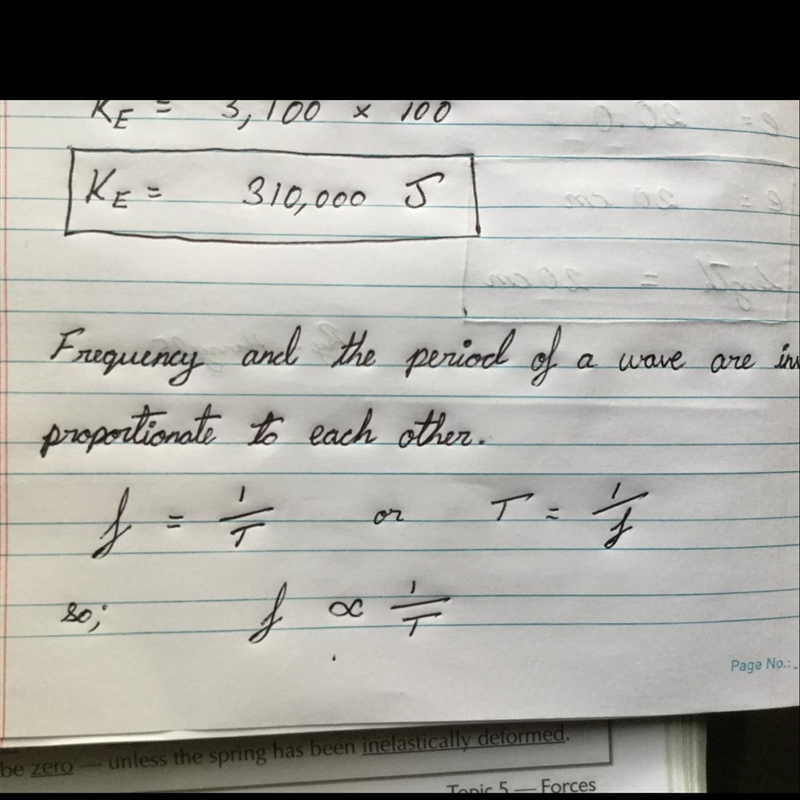 KE = 3,100 × 100
KE = 310,000 J
e = 20.0
e = 20 cm
length = 20 cm
Frequency and the period of a wave are
proportionate to each other.
f = 1/T or T = 1/f
so; f ∝ 1/T
Page No.:
be zero — unless the spring has been inelastically deformed.
Topic 5 — Forces